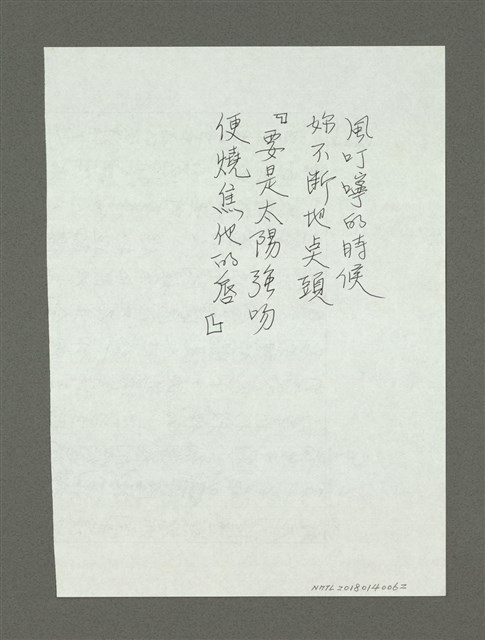 風叮嚀的時候
妳不斷地点頭
『要是太陽強吻
便燒焦他的唇』
NMTL20180140062